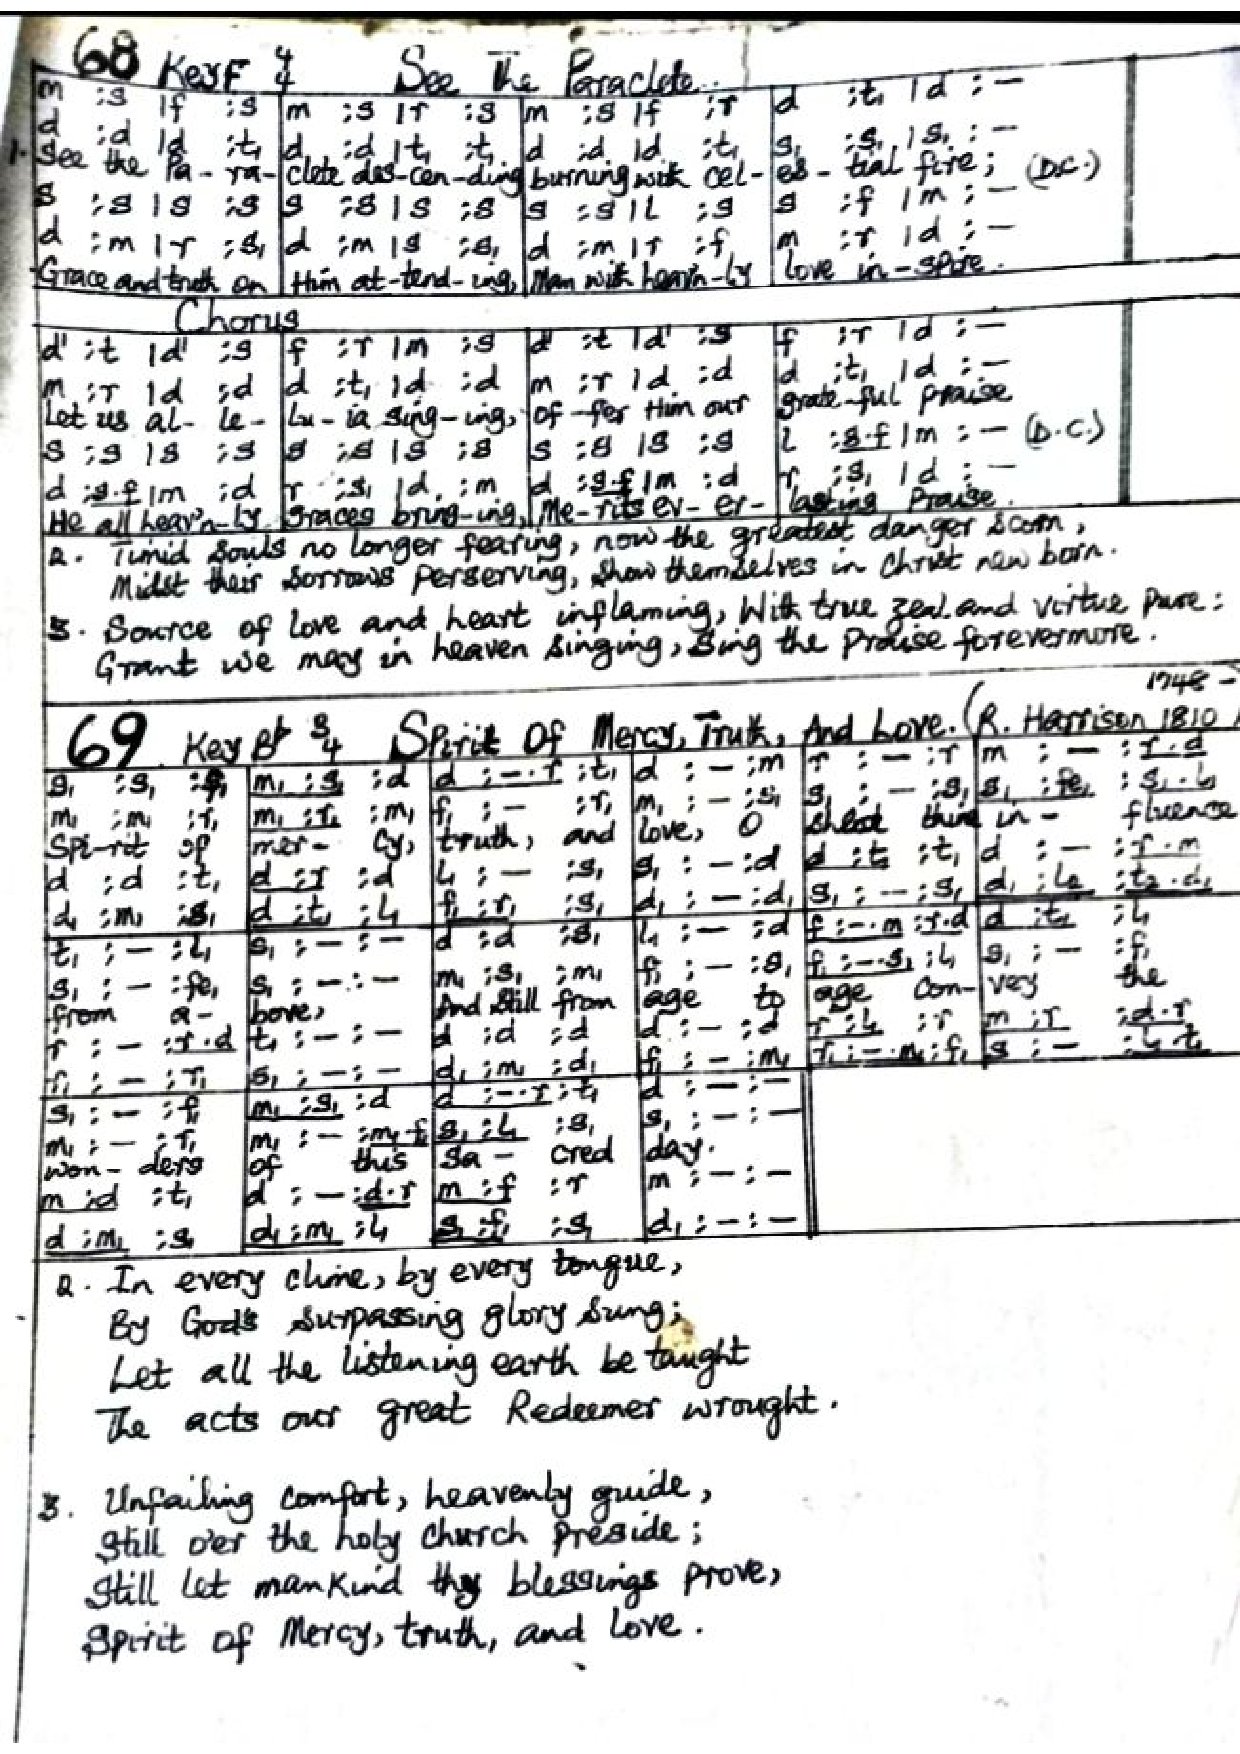 68 Key F 4/4 See The Paraclete.
m :s |f :s | m :s |r :s | m :s |f :r | d :t₁ |d :—
d :d |d :t₁ | d :d |t₁ :t₁ | d :d |d :t₁ | s₁ :s₁ |s₁ :—
1. See the Pa-ra-clete des-cen-ding burning with cel-es-tial fire; (D.C.)
s :s |s :s | s :s |s :s | s :s |L :s | s :f |m :—
d :m |r :s₁ | d :m |s :s₁ | d :m |r :f₁ | m :r |d :—
Grace and truth on Him at-tend-ing, Man with heav'n-ly love in-spire.
Chorus
d' :t |d' :s | f :r |m :s | d' :t |d' :s | f :r |d :—
m :r |d :d | d :t₁ |d :d | m :r |d :d | d :t₁ |d :—
Let us al-le-lu-ia sing-ing, of-fer Him our grate-ful praise
s :s |s :s | s :s |s :s | s :s |s :s | l :s.f |m :— (D.C.)
d :s.f |m :d | r :s₁ |d. :m | d :s.f |m :d | r :s₁ |d :—
He all heav'n-ly graces bring-ing, Me-rits ev-er-lasting Praise.
2. Timid souls no longer fearing, now the greatest danger scorn,
Midst their sorrows perserving, show themselves in Christ new born.
3. Source of love and heart inflaming, With true zeal and virtue pure:
Grant we may in heaven singing, sing the Praise forevermore.
1748 –
69 Key B♭ 3/4 Spirit Of Mercy, Truth, And Love. (R. Harrison 1810
s₁ :s₁ :f₁ | m₁ :s₁ :d | d :—.r :t₁ | d :— :m | r :— :r | m :— :r.d
m₁ :m₁ :r₁ | m₁ :r₁ :m₁ | f₁ :— :r₁ | m₁ :— :s₁ | s₁ :— :s₁ | s₁ :fe₁ :s₁.l₁
Spi-rit of mer-cy, truth, and love, O shed thine in-fluence
d :d :t₁ | d :r :d | l₁ :— :s₁ | s₁ :— :d | d :t₁ :t₁ | d :— :r.m
d₁ :m₁ :s₁ | d :t₁ :l₁ | f₁ :r₁ :s₁ | d₁ :— :d₁ | s₁ :— :s₁ | d₁ :l₂ :t₂.d₁
t₁ :— :l₁ | s₁ :— :— | d :d :s₁ | l₁ :— :d | f :—.m :r.d | d :t₁ :l₁
s₁ :— :fe₁ | s₁ :— :— | m₁ :s₁ :m₁ | f₁ :— :s₁ | f₁ :—.s₁ :l₁ | s₁ :— :f₁
from a-bove, And still from age to age con-vey the
r :— :r.d | t₁ :— :— | d :d :d | d :— :d | r :l₁ :r | m :r :d.r
r₁ :— :r₁ | s₁ :— :— | d₁ :m₁ :d₁ | f₁ :— :m₁ | r₁ :—.m₁ :f₁ | s :— :l₁.t₁
s₁ :— :f₁ | m₁ :s₁ :d | d :—.r :t₁ | d :— :—
m₁ :— :r₁ | m₁ :— :m₁.f₁ | s₁ :l₁ :s₁ | s₁ :— :—
won-ders of this sa-cred day.
m :d :t₁ | d :— :d.r | m :f :r | m :— :—
d :m₁ :s₁ | d₁ :m₁ :l₁ | s₁ :f₁ :s₁ | d₁ :— :—
2. In every clime, by every tongue,
By God's surpassing glory sung;
Let all the listening earth be taught
The acts our great Redeemer wrought.
3. Unfailing comfort, heavenly guide,
Still o'er the holy church preside;
Still let mankind thy blessings prove,
Spirit of Mercy, truth, and love.